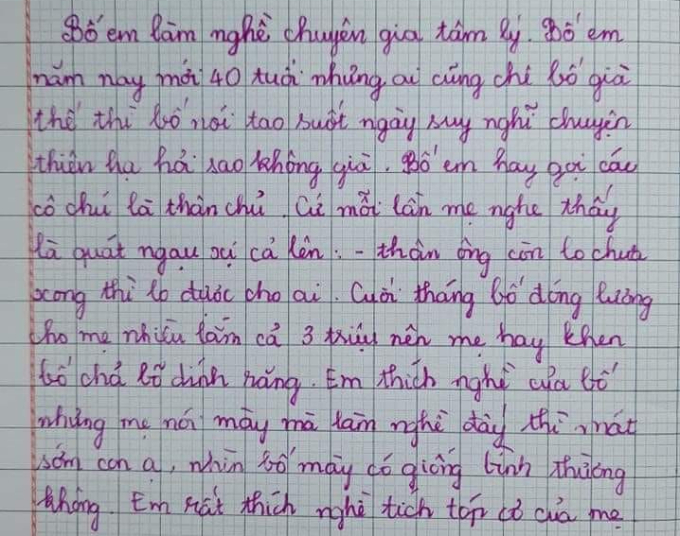 Bố em làm nghề chuyên gia tâm lý. Bố em
năm nay mới 40 tuổi nhưng ai cũng chê bố già
thế thì bố nói tao suốt ngày suy nghĩ chuyện
thiên hạ hỏi sao không già. Bố em hay gọi các
cô chú là thân chủ. Cứ mỗi lần mẹ nghe thấy
là quát ngậu xị cả lên: - thân ông còn lo chưa
xong thì lo được cho ai. Cuối tháng bố đóng lương
cho mẹ nhiều lắm cả 3 triệu nên mẹ hay khen
bố chả bõ dính răng. Em thích nghề của bố
nhưng mẹ nói mày mà làm nghề đấy thì mát
sớm con ạ, nhìn bố mày có giống bình thường
không. Em rất thích nghề tích tóp cờ của mẹ